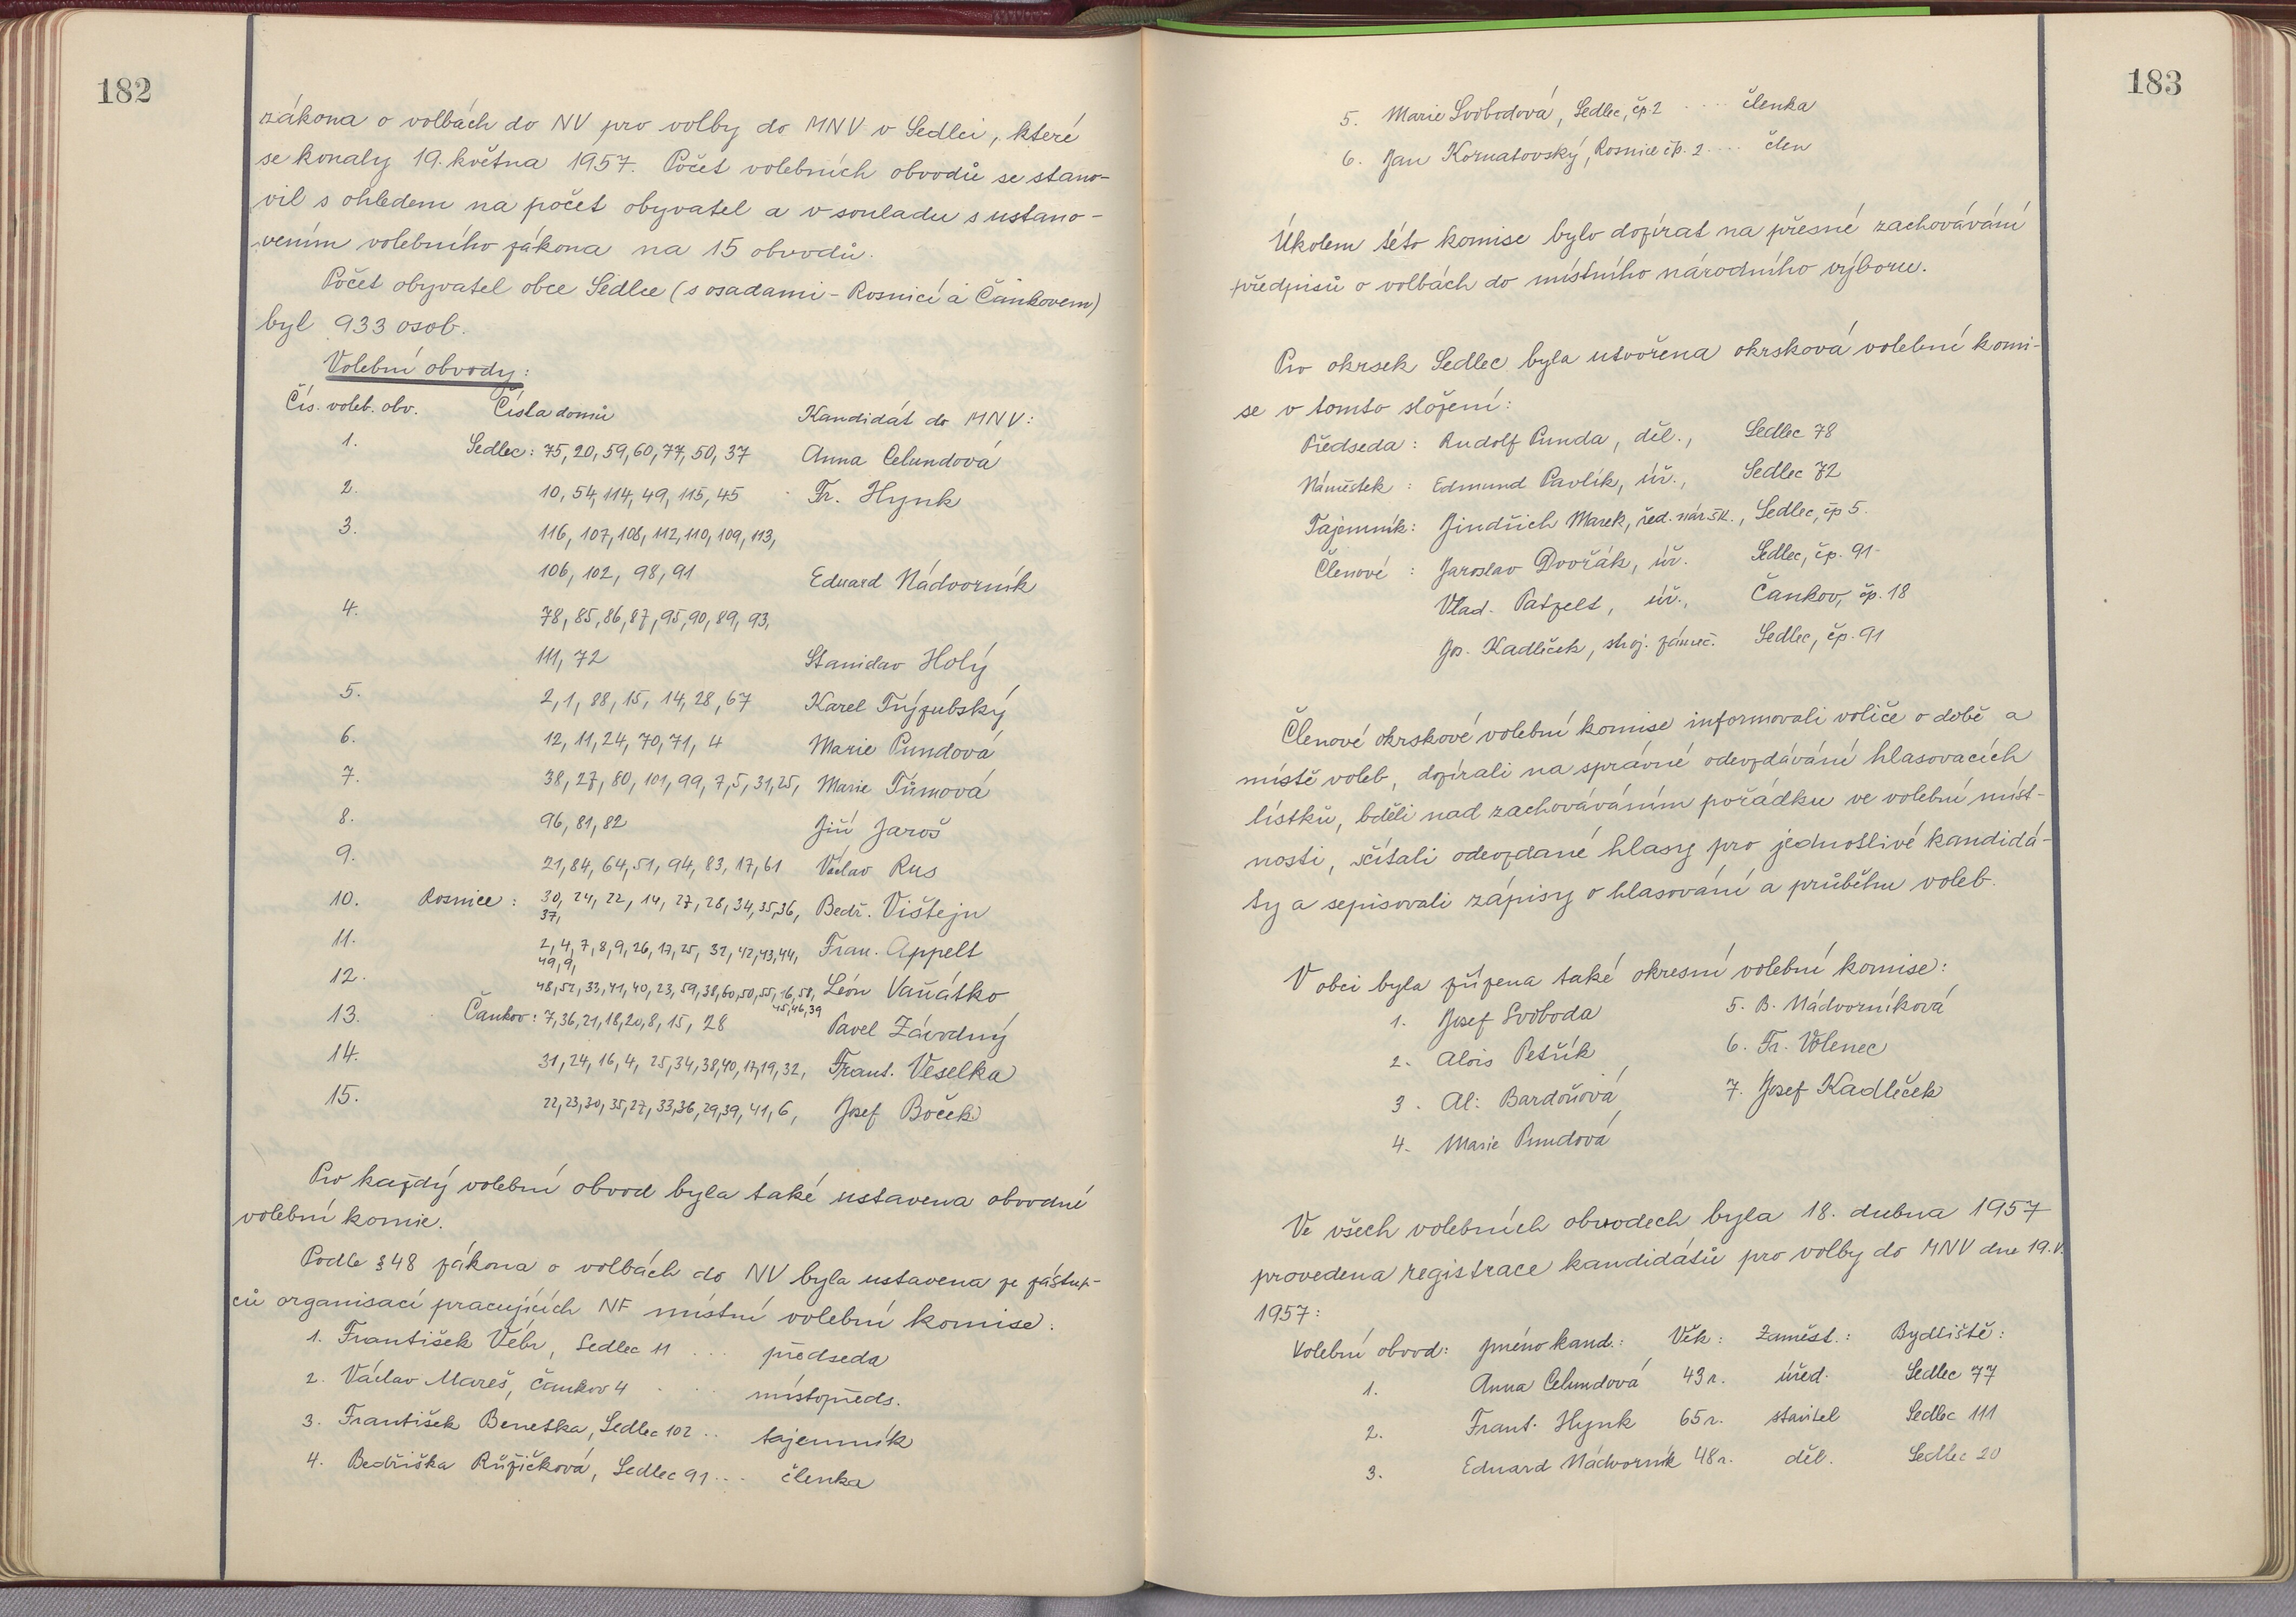 182
zákona o volbách do NV pro volby do MNV v Sedlci, které
se konaly 19. května 1957. Počet volebních obvodů se stano-
vil s ohledem na počet obyvatel a v souladu s ustano-
vením volebního zákona na 15 obvodů.
Počet obyvatel obce Sedlce (s osadami - Rosnicí a Čankovem)
byl 933 osob.
Volební obvody:
Čís. voleb. obv. Čísla domů Kandidát do MNV:
1. Sedlec: 75, 20, 59, 60, 77, 50, 37 Anna Celundová
2. 10, 54, 114, 49, 115, 45 Fr. Hynk
3. 116, 107, 108, 112, 110, 109, 113,
106, 102, 98, 91 Eduard Nádvorník
4. 78, 85, 86, 87, 95, 90, 89, 93,
111, 72 Stanislav Holý
5. 2, 1, 88, 15, 14, 28, 67 Karel Trýzubský
6. 12, 11, 24, 70, 71, 4 Marie Pundová
7. 38, 27, 80, 101, 99, 7, 5, 31, 25, Marie Tůmová
8. 96, 81, 82 Jiří Jaroš
9. 21, 84, 64, 51, 94, 83, 17, 61 Václav Rus
10. Rosnice: 30, 24, 22, 14, 27, 28, 34, 35, 36, Bedř. Vištejn
37,
11. 2, 4, 7, 8, 9, 26, 17, 25, 32, 42, 43, 44, Fran. Appelt
49, 9,
12. 48, 52, 33, 41, 40, 23, 59, 38, 60, 50, 55, 16, 58, Léon Vaňátko
45, 46, 39
13. Čankov: 7, 36, 21, 18, 20, 8, 15, 28 Pavel Závodný
14. 31, 24, 16, 4, 25, 34, 38, 40, 17, 19, 32, Frant. Veselka
15. 22, 23, 30, 35, 27, 33, 36, 29, 39, 41, 6, Josef Boček
Pro každý volební obvod byla také ustavena obvodní
volební komie.
Podle § 48 zákona o volbách do NV byla ustavena ze zástup-
ců organisací pracujících NF místní volební komise:
1. František Vébr, Sedlec 11 ... předseda
2. Václav Mareš, Čankov 4 ... místopředs.
3. František Benetka, Sedlec 102 .. tajemník
4. Bedřiška Růžičková, Sedlec 91 ... členka
183
5. Marie Svobodová, Sedlec, čp. 2 .... členka
6. Jan Kornatovský, Rosnice čp. 2 .... člen
Úkolem této komise bylo dozírat na přesné zachovávání
předpisů o volbách do místního národního výboru.
Pro okrsek Sedlec byla utvořena okrsková volební komi-
se v tomto složení:
Předseda: Rudolf Punda, děl., Sedlec 78
Náměstek: Edmund Pavlík, úř., Sedlec 72
Tajemník: Jindřich Marek, řed. nár. šk., Sedlec, čp 5.
Členové: Jaroslav Dvořák, úř. Sedlec, čp. 91-
Vlad. Patzelt, úř., Čankov, čp. 18
Jos. Kadleček, stroj. zámeč. Sedlec, čp. 91
Členové okrskové volební komise informovali voliče o době a
místě voleb, dozírali na správné odevzdávání hlasovacích
lístků, bděli nad zachováváním pořádku ve volební míst-
nosti, sčítali odevzdané hlasy pro jednotlivé kandidá-
ty a sepisovali zápisy o hlasování a průběhu voleb.
V obci byla zřízena také okresní volební komise:
1. Josef Svoboda 5. B. Nádvorníková
2. Alois Petřík 6. Fr. Volenec
3. Al. Bardoňová 7. Josef Kadleček
4. Marie Pundová
Ve všech volebních obvodech byla 18. dubna 1957
provedena registrace kandidátů pro volby do MNV dne 19. V.
1957:
Volební obvod: Jméno kand.: Věk: Zaměst.: Bydliště:
1. Anna Celundová 43 r. úřed. Sedlec 77
2. Frant. Hynk 65 r. stavitel Sedlec 111
3. Eduard Nádvorník 48 r. děl. Sedlec 20